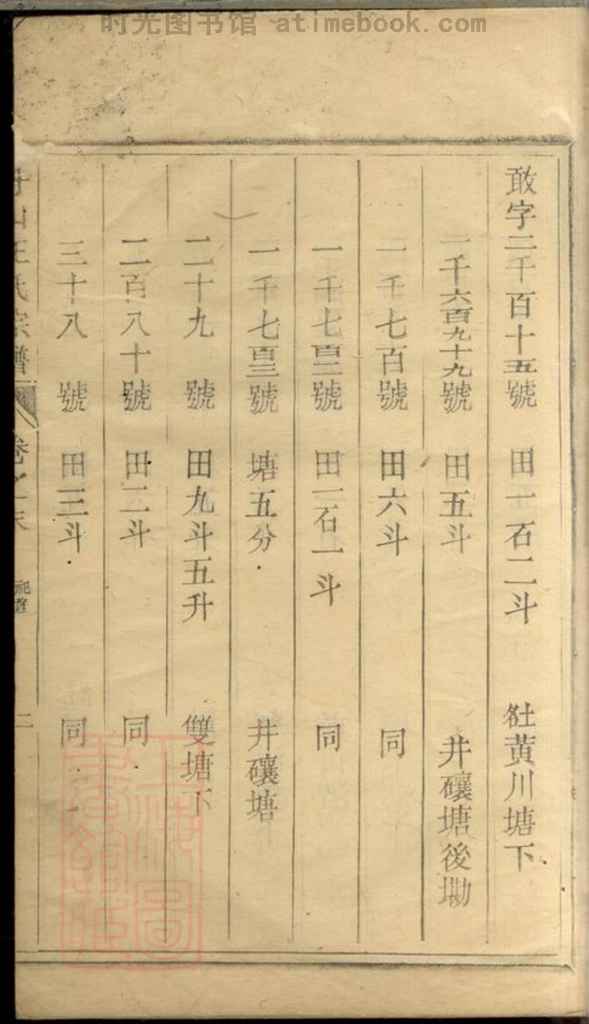 时光图书馆 atimebook.com
敢字二千百十五號 田一石二斗 社黄川塘下
一千六百九十九號 田五斗 井磉塘後墈
一千七百號 田六斗 同
一千七百二號 田一石一斗 同
一千七百三號 塘五分 井磉塘
二十九號 田九斗五升 雙塘下
二百八十號 田二斗 同
三十八號 田三斗 同
山王氏宗譜 卷之末 祀產 二